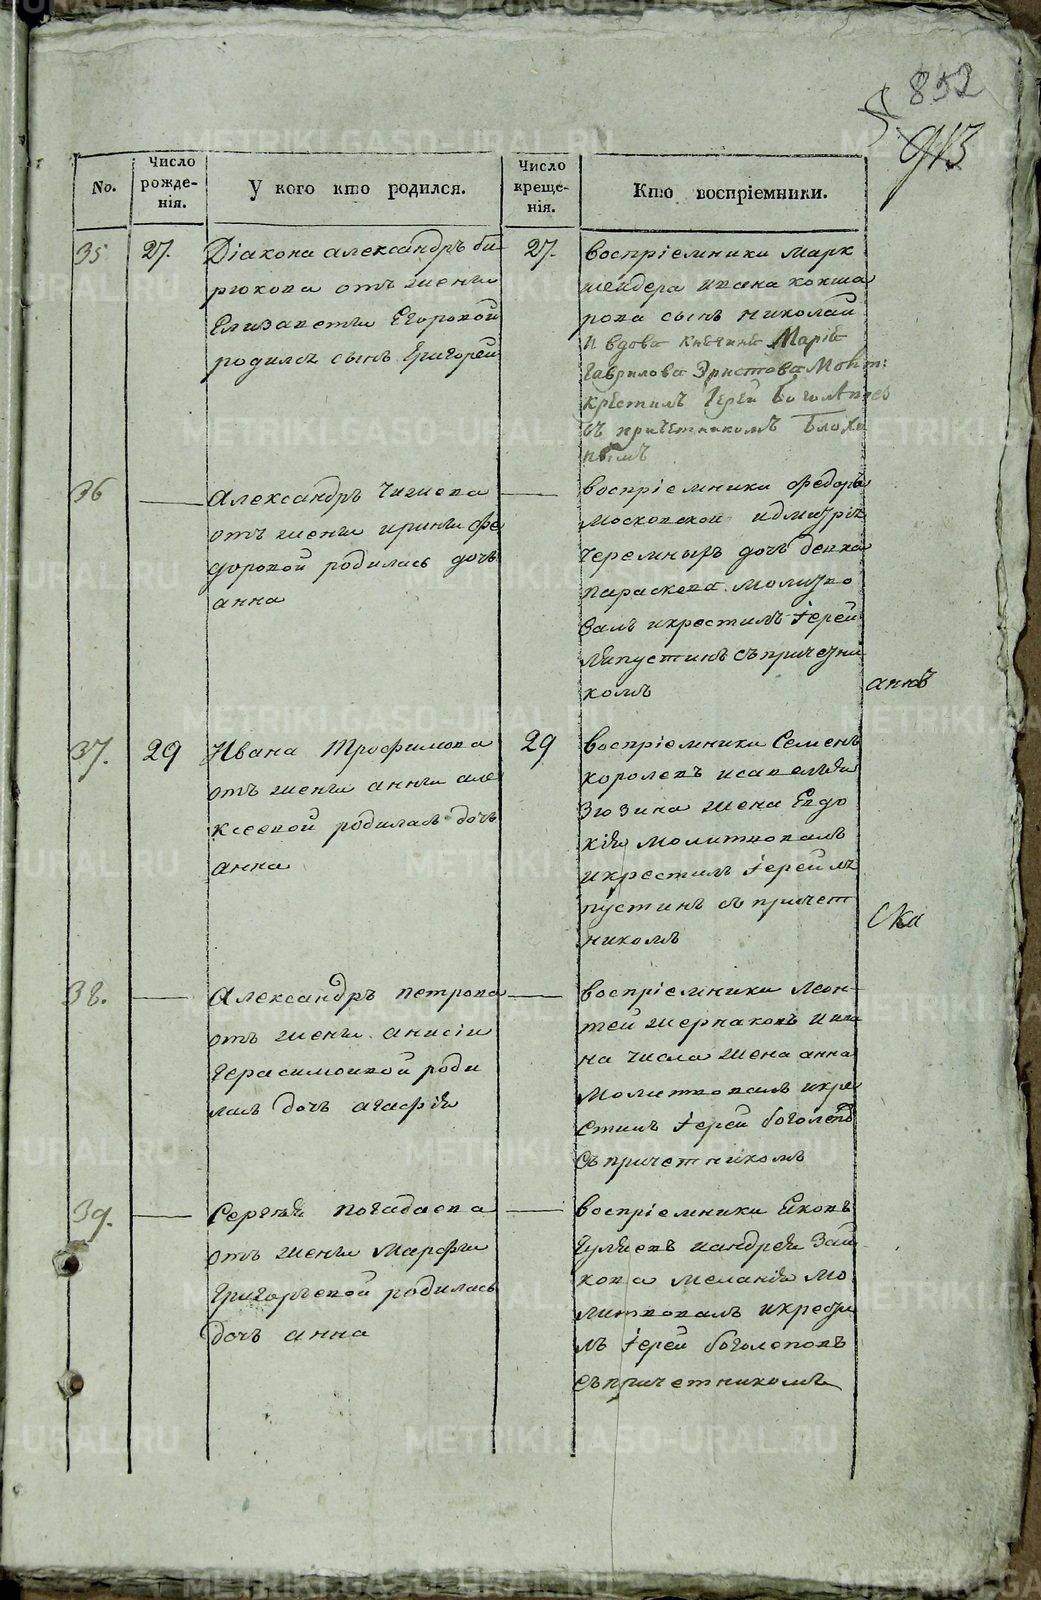 852
913
No.
Число рожде-нія.
У кого кто родился.
Число креще-нія.
Кто воспріемники.
35
27.
Діакона александръ би
рюкова отъ жены
Елизаветы Егоровой
родился сынъ григорей
27.
воспріемники марк
шейдера ивана кокша
рова сынъ николай
и вдова княгиня Марія
Гаврилова Эристова Молит:
крестилъ Іерей Боголѣповъ
съ причетникомъ Блохи
нымъ
36
Александръ чигаева
отъ жены ирины фе
доровой родилась дочь
анна
воспріемники федоръ
московской идмитрія
черемныхъ дочь девка
параскева молитво
валъ икрестилъ Іерей
лапустинъ съпричетни
комъ
аннѣ
37.
29
Ивана трофимова
отъ жены анны але
ксеевой родилась дочь
анна
29
воспріемники Семенъ
королевъ исавелья
Зюзина жена Евдо
кія молитвовалъ
икрестилъ Іерей ла
пустинъ съ причет
никомъ
38.
Александръ петрова
отъ жены анисіи
герасимовной роди
лась дочь агафія
воспріемники леон
тей шерпаковъ ива
на числа жена анна
молитвовалъ икре
стилъ Іерей боголепо
съпричетникомъ
39.
Сергѣя погадаева
отъ жены Марфы
григорьевой родилась
дочь анна
воспріемники Яковъ
Гуляевъ иандрея Зай
кова меланія мо
литвовалъ икрести
лъ Іерей боголеповъ
съпричетникомъ
METRIKI.GASO-URAL.RU